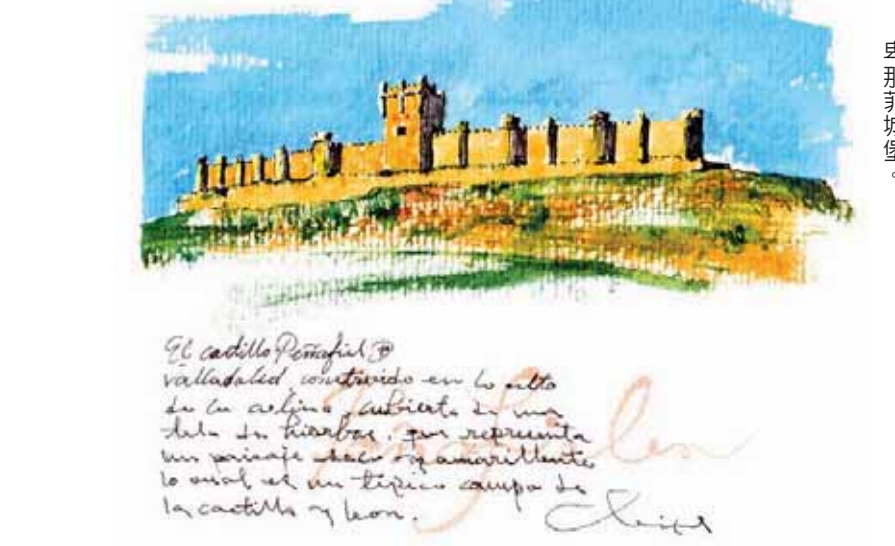 El castillo Peñafiel
Valladolid, construido en lo alto
de la colina, cubierta de una
tela de hierbas, que representa
un paisaje seco y amarillento
lo cual es un típico campo de
la castilla y leon.
那菲城堡。